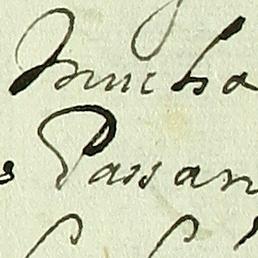 mucha
s Passan